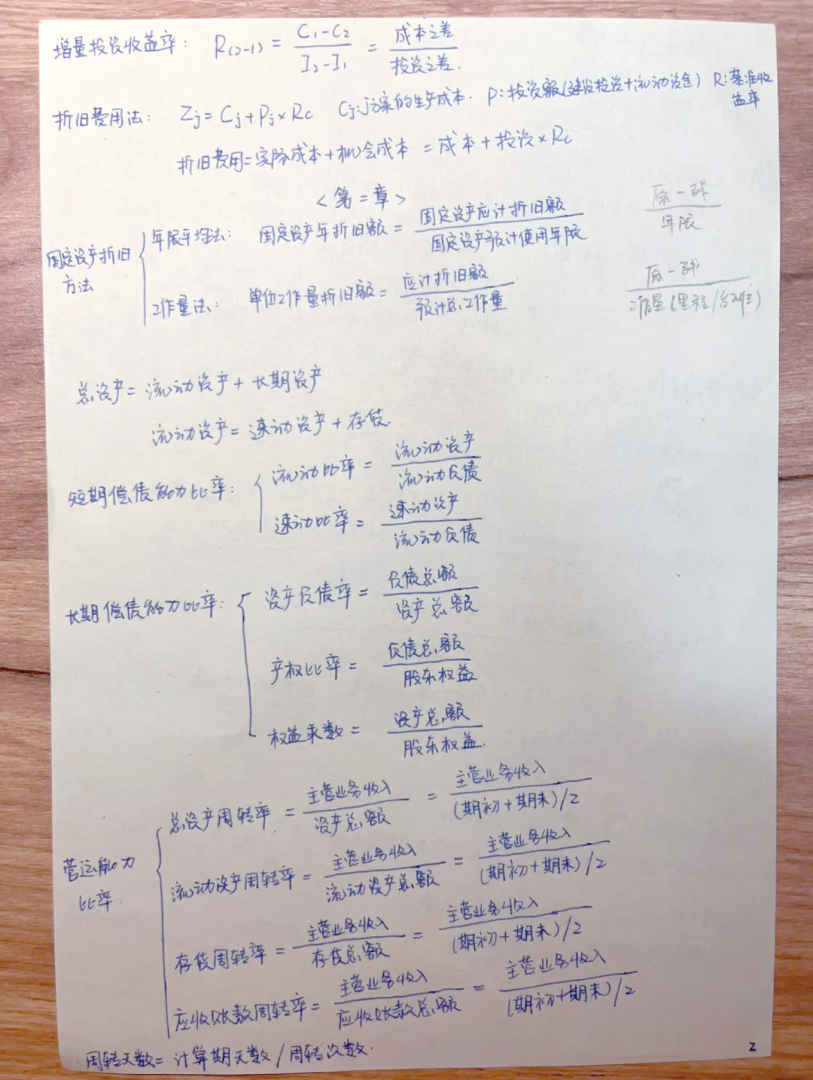 增量投资收益率: R(2-1) = C₁-C₂ / I₂-I₁ = 成本之差 / 投资之差.
折旧费用法: Zj = Cj + Pj × Rc Cj: j方案的生产成本. P: 投资额(建设投资+流动资金) R: 基准收益率
折旧费用=实际成本+机会成本 = 成本 + 投资 × Rc
<第二章>
固定资产折旧方法
年限平均法: 固定资产年折旧额 = 固定资产应计折旧额 / 固定资产预计使用年限
原-残 / 年限
工作量法: 单位工作量折旧额 = 应计折旧额 / 预计总工作量
原-残 / 工作量(里程/台班)
总资产 = 流动资产 + 长期资产
流动资产 = 速动资产 + 存货.
短期偿债能力比率:
流动比率 = 流动资产 / 流动负债
速动比率 = 速动资产 / 流动负债
长期偿债能力比率:
资产负债率 = 负债总额 / 资产总额
产权比率 = 负债总额 / 股东权益
权益乘数 = 资产总额 / 股东权益.
营运能力比率.
总资产周转率 = 主营业务收入 / 资产总额 = 主营业务收入 / (期初+期末)/2
流动资产周转率 = 主营业务收入 / 流动资产总额 = 主营业务收入 / (期初+期末)/2
存货周转率 = 主营业务收入 / 存货总额 = 主营业务收入 / (期初+期末)/2
应收账款周转率 = 主营业务收入 / 应收账款总额 = 主营业务收入 / (期初+期末)/2
周转天数 = 计算期天数 / 周转次数.
2